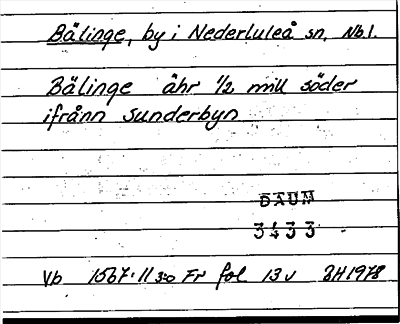 Bälinge, by i Nederluleå sn, Nb.l.
Bälinge ähr 1/2 mill söder
ifrånn Sunderbyn
DAUM
3433
Vb 1567:11 3:o Fr fol 13 v BH 1978